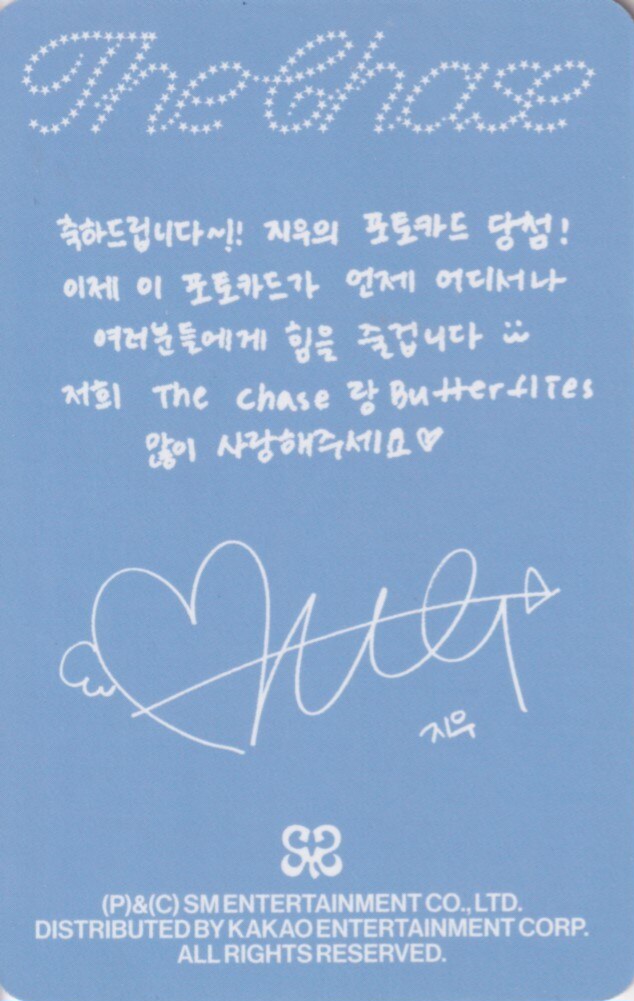 The Chase
축하드립니다~!! 지우의 포토카드 당첨!
이제 이 포토카드가 언제 어디서나
여러분들에게 힘을 줄겁니다
저희 The Chase 랑 Butterflies
많이 사랑해주세요♡
지우
(P)&(C) SM ENTERTAINMENT CO., LTD.
DISTRIBUTED BY KAKAO ENTERTAINMENT CORP.
ALL RIGHTS RESERVED.